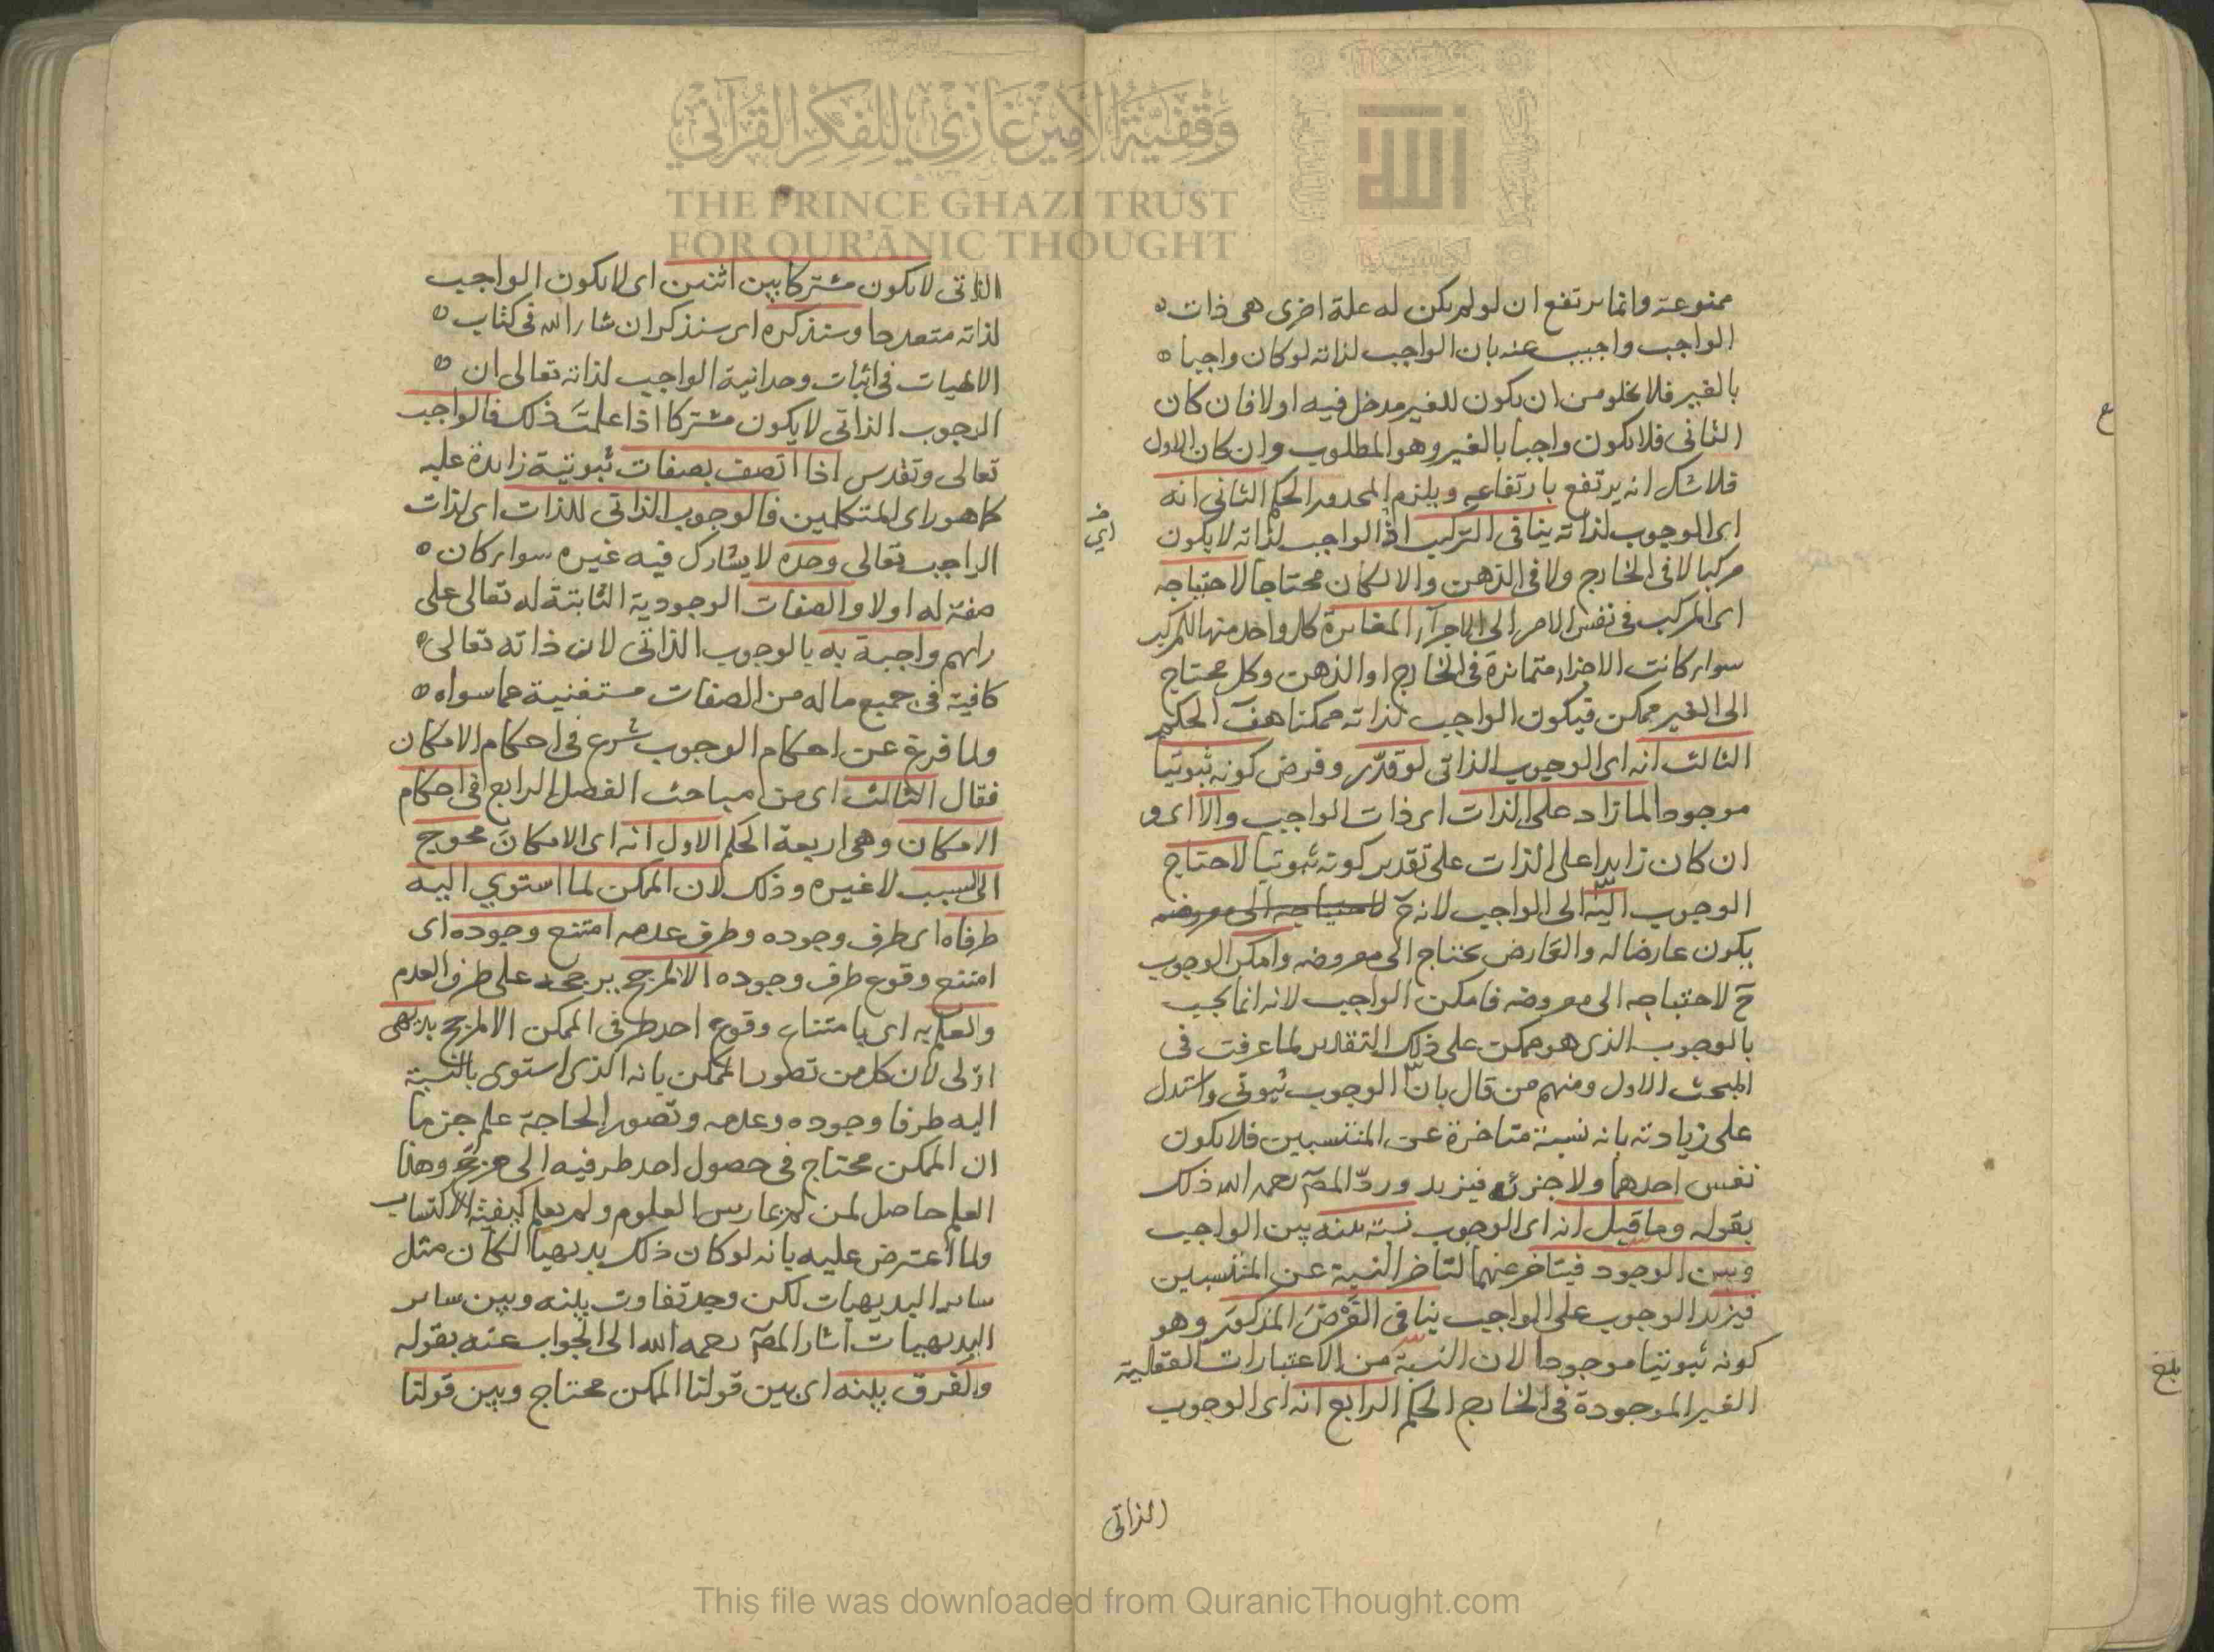 ممنوعة وانما يرتفع ان لو لم يكن له علة اخرى هى ذات
الواجب واجيب عنه بان الواجب لذاته لو كان واجبا
بالغير فلا يخلو من ان يكون للغير مدخل فيه او لا فان كان
الثانى فلا يكون واجبا بالغير وهو المطلوب وان كان الاول
فلا شك انه يرتفع بارتفاعه ويلزم المحدور الحكم الثانى انه
اى الوجوب لذاته ينافى التركيب اذ الواجب لذاته لا يكون
مركبا لا فى الخارج ولا فى الذهن والا لكان محتاجا لاحتياجه
اى المركب فى نفس الامر الى الاجزآء المغايرة كل واحد منها للمركب
سواء كانت الاجزاء متمايزة فى الخارج او الذهن وكل محتاج
الى الغير ممكن فيكون الواجب لذاته ممكنا هف الحكم
الثالث انه اى الوجوب الذاتى لو قدّر وفرض كونه ثبوتيا
موجودا لما زاد على الذات اى ذات الواجب والا اى و
ان كان زايدا على الذات على تقدير كونه ثبوتيا لاحتاج
الوجوب اليه الى الواجب لانه ح لاحتياجه الى معروضه
يكون عارضا له والعارض يحتاج الى معروضه وامكن الوجوب
ح لاحتياجه الى معروضه فامكن الواجب لانه انما يجب
بالوجوب الذى هو ممكن على ذلك التقدير لما عرفت فى
المبحث الاول ومنهم من قال بانّ الوجوب ثبوتى واستدل
على زيادته بانه نسبة متاخرة عن المنتسبين فلا يكون
نفس احدهما ولا جزئه فيزيد وردّ المصـ رحمه الله ذلك
بقوله وما قيل انه اى الوجوب نسبة بينه بين الواجب
وبين الوجود فيتاخر عنهما لتاخر النسبة عن المنتسبين
فيزيد الوجوب على الواجب ينافى الفرض المذكور وهو
كونه ثبوتيا موجودا لان النسبة من الاعتبارات العقلية
الغير الموجودة فى الخارج الحكم الرابع انه اى الوجوب
الذاتى
بلغ
الذاتى لا يكون مشتركا بين اثنين اى لا يكون الواجب
لذاته متعددا وسنذكره اى سنذكر ان شاء الله فى كتاب
الالهيات فى اثبات وحدانية الواجب لذاته تعالى ان
الوجوب الذاتى لا يكون مشتركا اذا علمت ذلك فالواجب
تعالى وتقدس اذا اتصف بصفات ثبوتية زايدة عليه
كما هو راى المتكلمين فالوجوب الذاتى للذات اى لذات
الواجب تعالى وحده لا يشارك فيه غيره سواء كان
صفة له او لا والصفات الوجودية الثابتة له تعالى على
رايهم واجبة به بالوجوب الذاتى لان ذاته تعالى
كافية فى جميع ما له من الصفات مستغنية عما سواه
ولما فرغ عن احكام الوجوب شرع فى احكام الامكان
فقال الثالث اى من مباحث الفصل الرابع فى احكام
الامكان وهى اربعة الحكم الاول انه اى الامكان محوج
الى السبب لا غيره وذلك لان الممكن لما استوي اليه
طرفاه اى طرف وجوده وطرف عدمه امتنع وجوده اى
امتنع وقوع طرف وجوده الا لمرجح يرجحه على طرف العدم
والعلم به اى بامتناع وقوع احد طرفى الممكن الا لمرجح بديهى
اوّلى لان كل من تصور الممكن بانه الذى استوى بالنسبة
اليه طرفا وجوده وعدمه وتصور الحاجة علم جزما
ان الممكن محتاج فى حصول احد طرفيه الى مرجح وهذا
العلم حاصل لمن لم يمارس العلوم ولم يعلم كيفية الاكتساب
ولما اعترض عليه بانه لو كان ذلك بديهيا لكان مثل
ساير البديهيات لكن وجد تفاوت بينه وبين ساير
البديهيات اشار المصـ رحمه الله الى الجواب عنه بقوله
والفرق بينه اى بين قولنا الممكن محتاج وبين قولنا
وقفية الأمير غازي للفكر القرآني
THE PRINCE GHAZI TRUST
FOR QUR'ĀNIC THOUGHT
This file was downloaded from QuranicThought.com